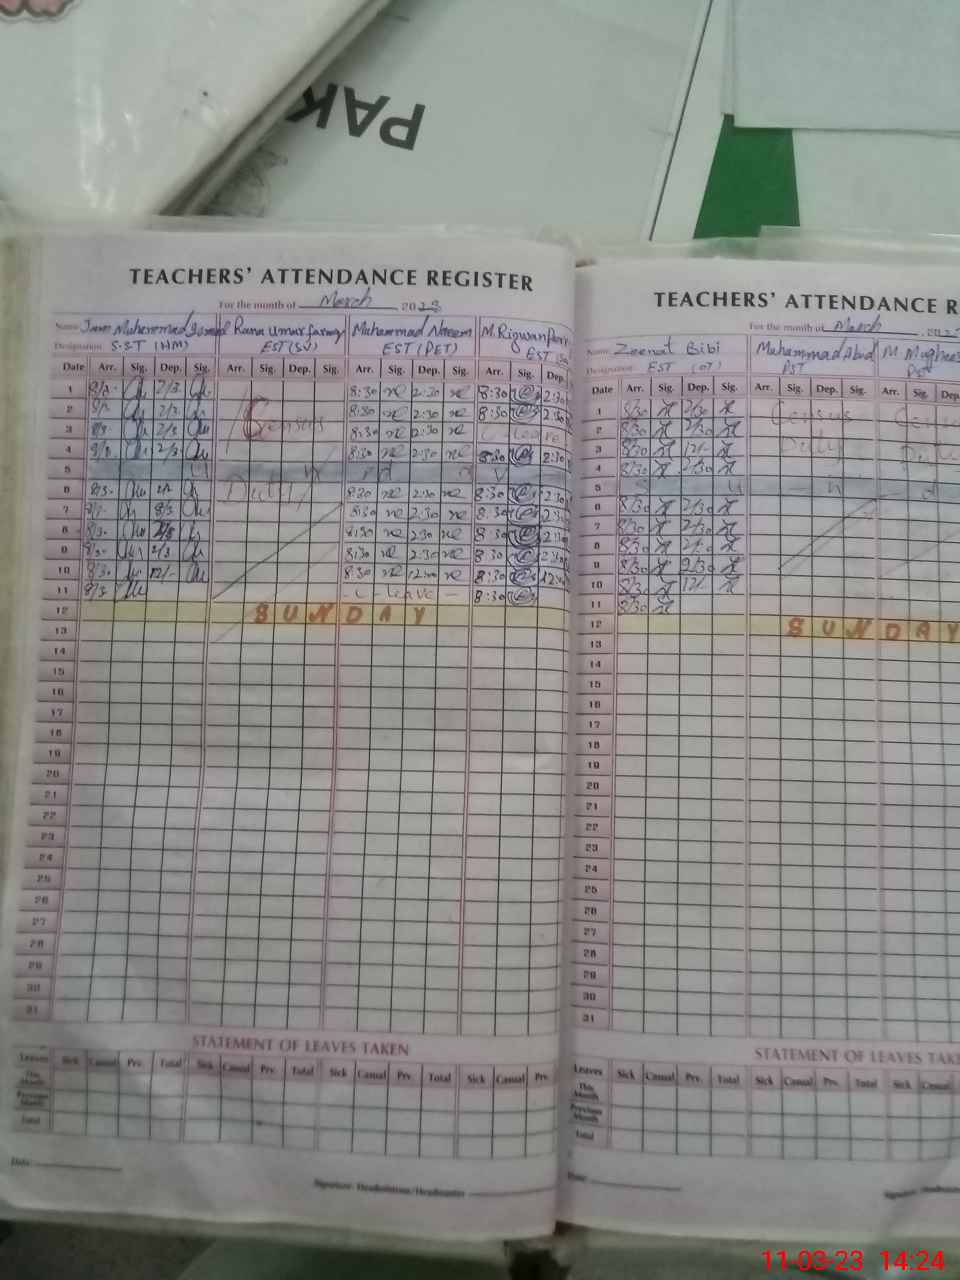 PAK
TEACHERS' ATTENDANCE REGISTER
For the month of March 2023
Name Muhammad Rana Umar farooq Muhammad Naeem M. Rizwan
Designation S.S.T (HM) EST (SV) EST (PET) EST
Date Arr. Sig. Dep. Sig. Arr. Sig. Dep. Sig. Arr. Sig. Dep. Sig. Arr. Sig. Dep.
1 8:30 2:30 8:30 2:30
2 Census 8:30 2:30 8:30 2:30
3 8:30 2:30 C-leave
4 8:30 2:30 8:30 2:30
5 S u n d a y
6 Duty 8:30 2:30 8:30 2:30
7 8:30 2:30 8:30 2:30
8 8:30 2:30 8:30 2:30
9 8:30 2:30 8:30 2:30
10 8:30 12:00 8:30
11 - C - leave - 8:30
12 SUNDAY
13
14
15
16
17
18
19
20
21
22
23
24
25
26
27
28
29
30
31
STATEMENT OF LEAVES TAKEN
Leaves Sick Casual Prv. Total Sick Casual Prv. Total Sick Casual Prv. Total Sick Casual Prv.
This Month
Previous Month
Total
Date
Signature: Headmistress/Headmaster
TEACHERS' ATTENDANCE R
For the month of March 202
Name Zeenat Bibi Muhammad Abid M
Designation EST (OT) PST
Date Arr. Sig. Dep. Sig. Arr. Sig. Dep. Sig. Arr. Sig. Dep.
1 8/30 2/30 Census
2 8/30 2/30 Duty
3 8/30 12/-
4 8/30 2/30
5 S u n d
6 8/30 2/30
7 8/30 2/30
8 8/30 2/30
9 8/30 2/30
10 8/30 12/-
11 8/30
12 SUNDAY
13
14
15
16
17
18
19
20
21
22
23
24
25
26
27
28
29
30
31
STATEMENT OF LEAVES TAKE
Leaves Sick Casual Prv. Total Sick Casual Prv. Total Sick Casual
This Month
Previous Month
Total
11-03-23 14:24